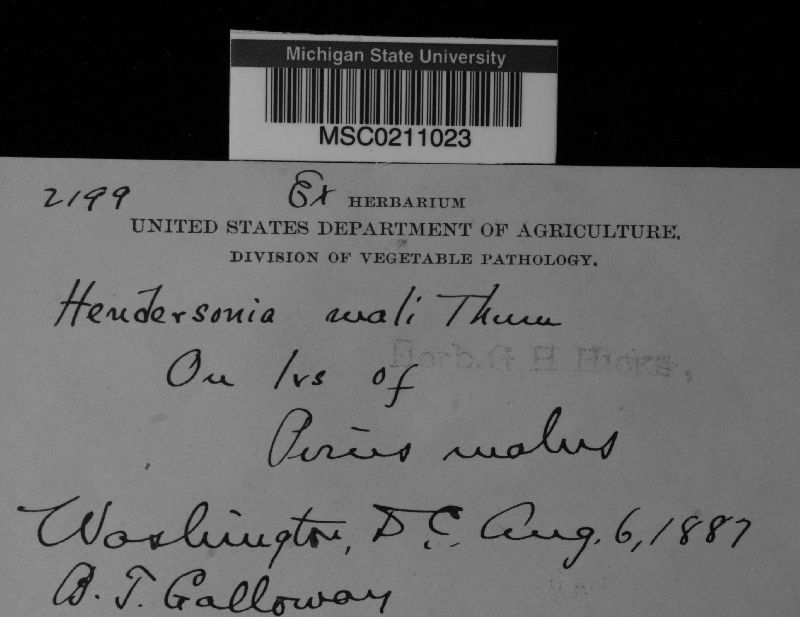 Michigan State University
MSC0211023
2199 Ex HERBARIUM
UNITED STATES DEPARTMENT OF AGRICULTURE.
DIVISION OF VEGETABLE PATHOLOGY.
Hendersonia mali Thum
On lvs of
Pirus malus
Washington, D.C. Aug. 6, 1887
B. T. Galloway